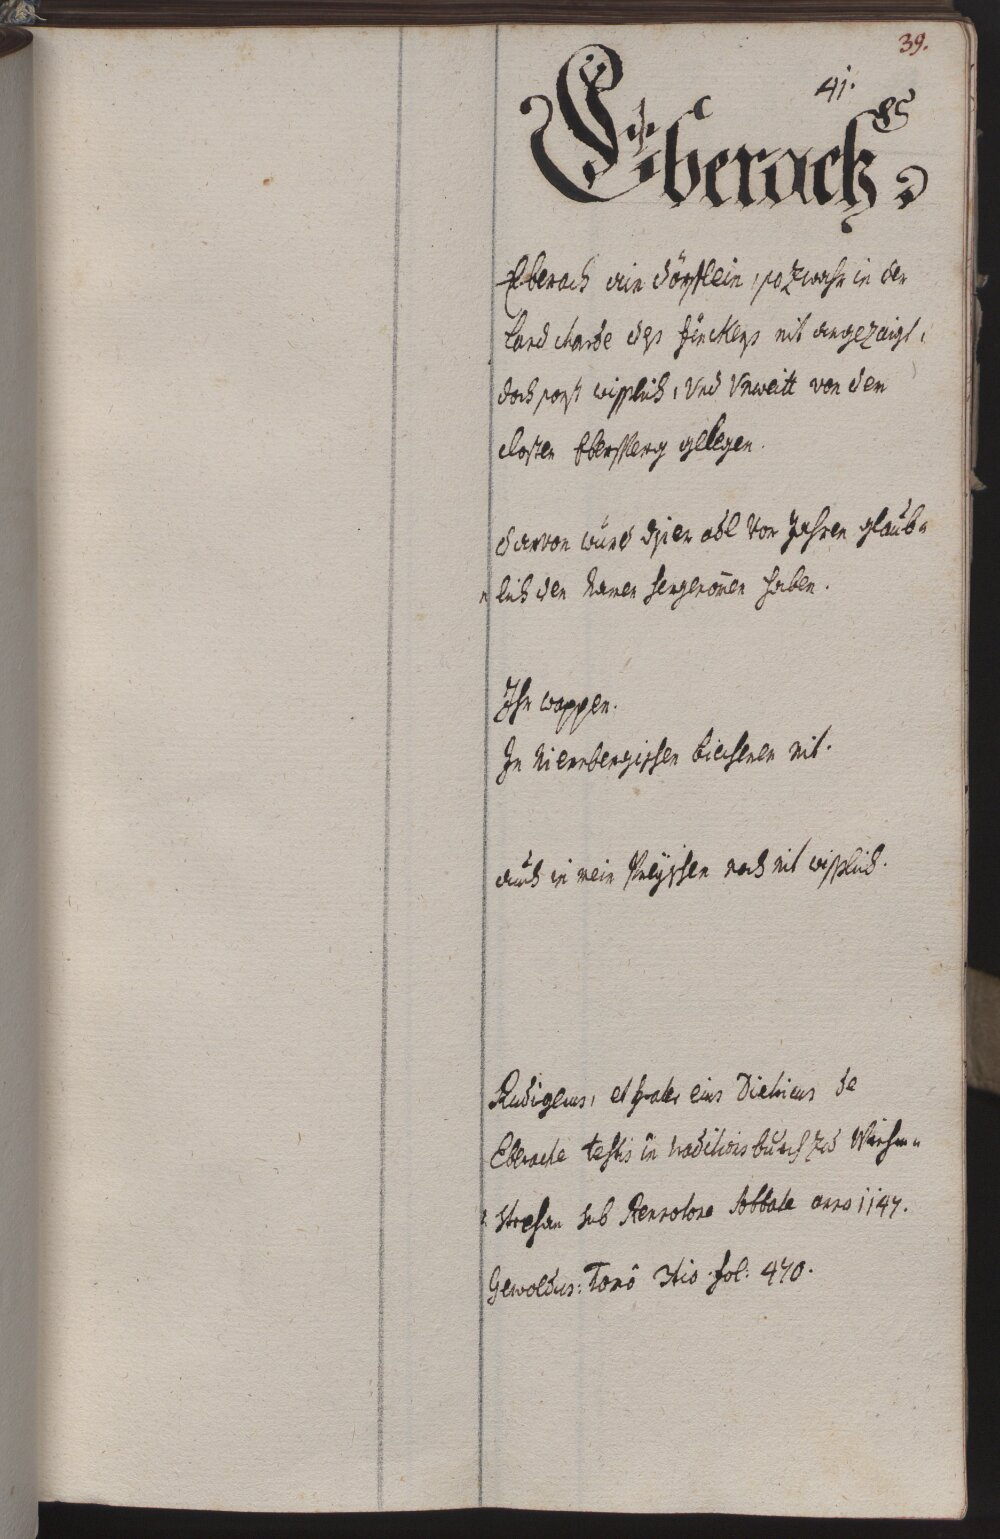 39.
41.
Eberack
Eberach ain dörflein, so zwahr in der
Land charte des finckens nit angezaigt,
doch sonst wisslich, Vnd Vnweitt von dem
closter Ebersperg gelegen.
darvon würd diser adl Vor Jahren glaub=
lich den Namen hergenomen haben.
Ihr wappen.
In Niernbergischen biechenen nit.
auch in mein streyssen noch nit wisslich.
Rudigerus, et frater eius Dietricus de
Eberache testis in traditionsbuech zu Weichen=
stephan sub abbate anno 1147.
Gewoldus: Tomo 3tio. fol: 470.